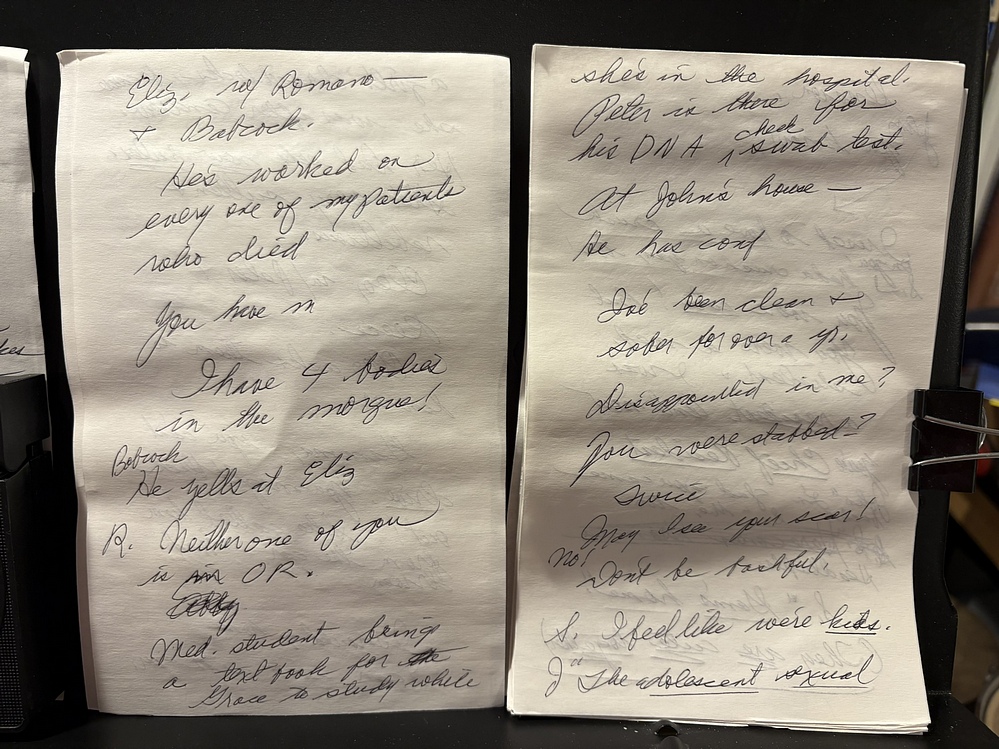 Eliz. w/ Romano —
+ Babcock.
He's worked on
every one of my patients
who died
You have m
I have 4 bodies
in the morgue!
Babcock
He yells at Eliz
R. Neither one of you
is in OR.
Med. student brings
a text book for the
Grace to study while
she's in the hospital.
Peter is there for
check
his DNA swab test.
At John's house —
He has conf
I've been clean +
sober for over a yr.
Disappointed in me?
You were stabbed—?
Twice
May I see your scar!
No!
Don't be bashful.
S. I feel like we're kids.
J " The adolescent sexual